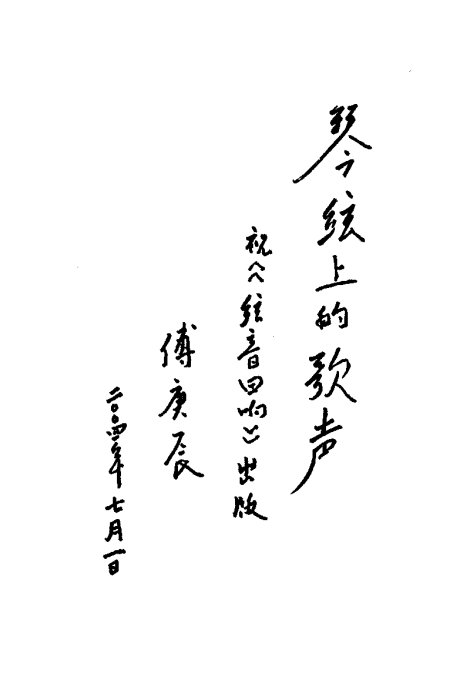 琴弦上的歌声
祝《弦音回响》出版
傅庚辰
二〇〇四年七月一日